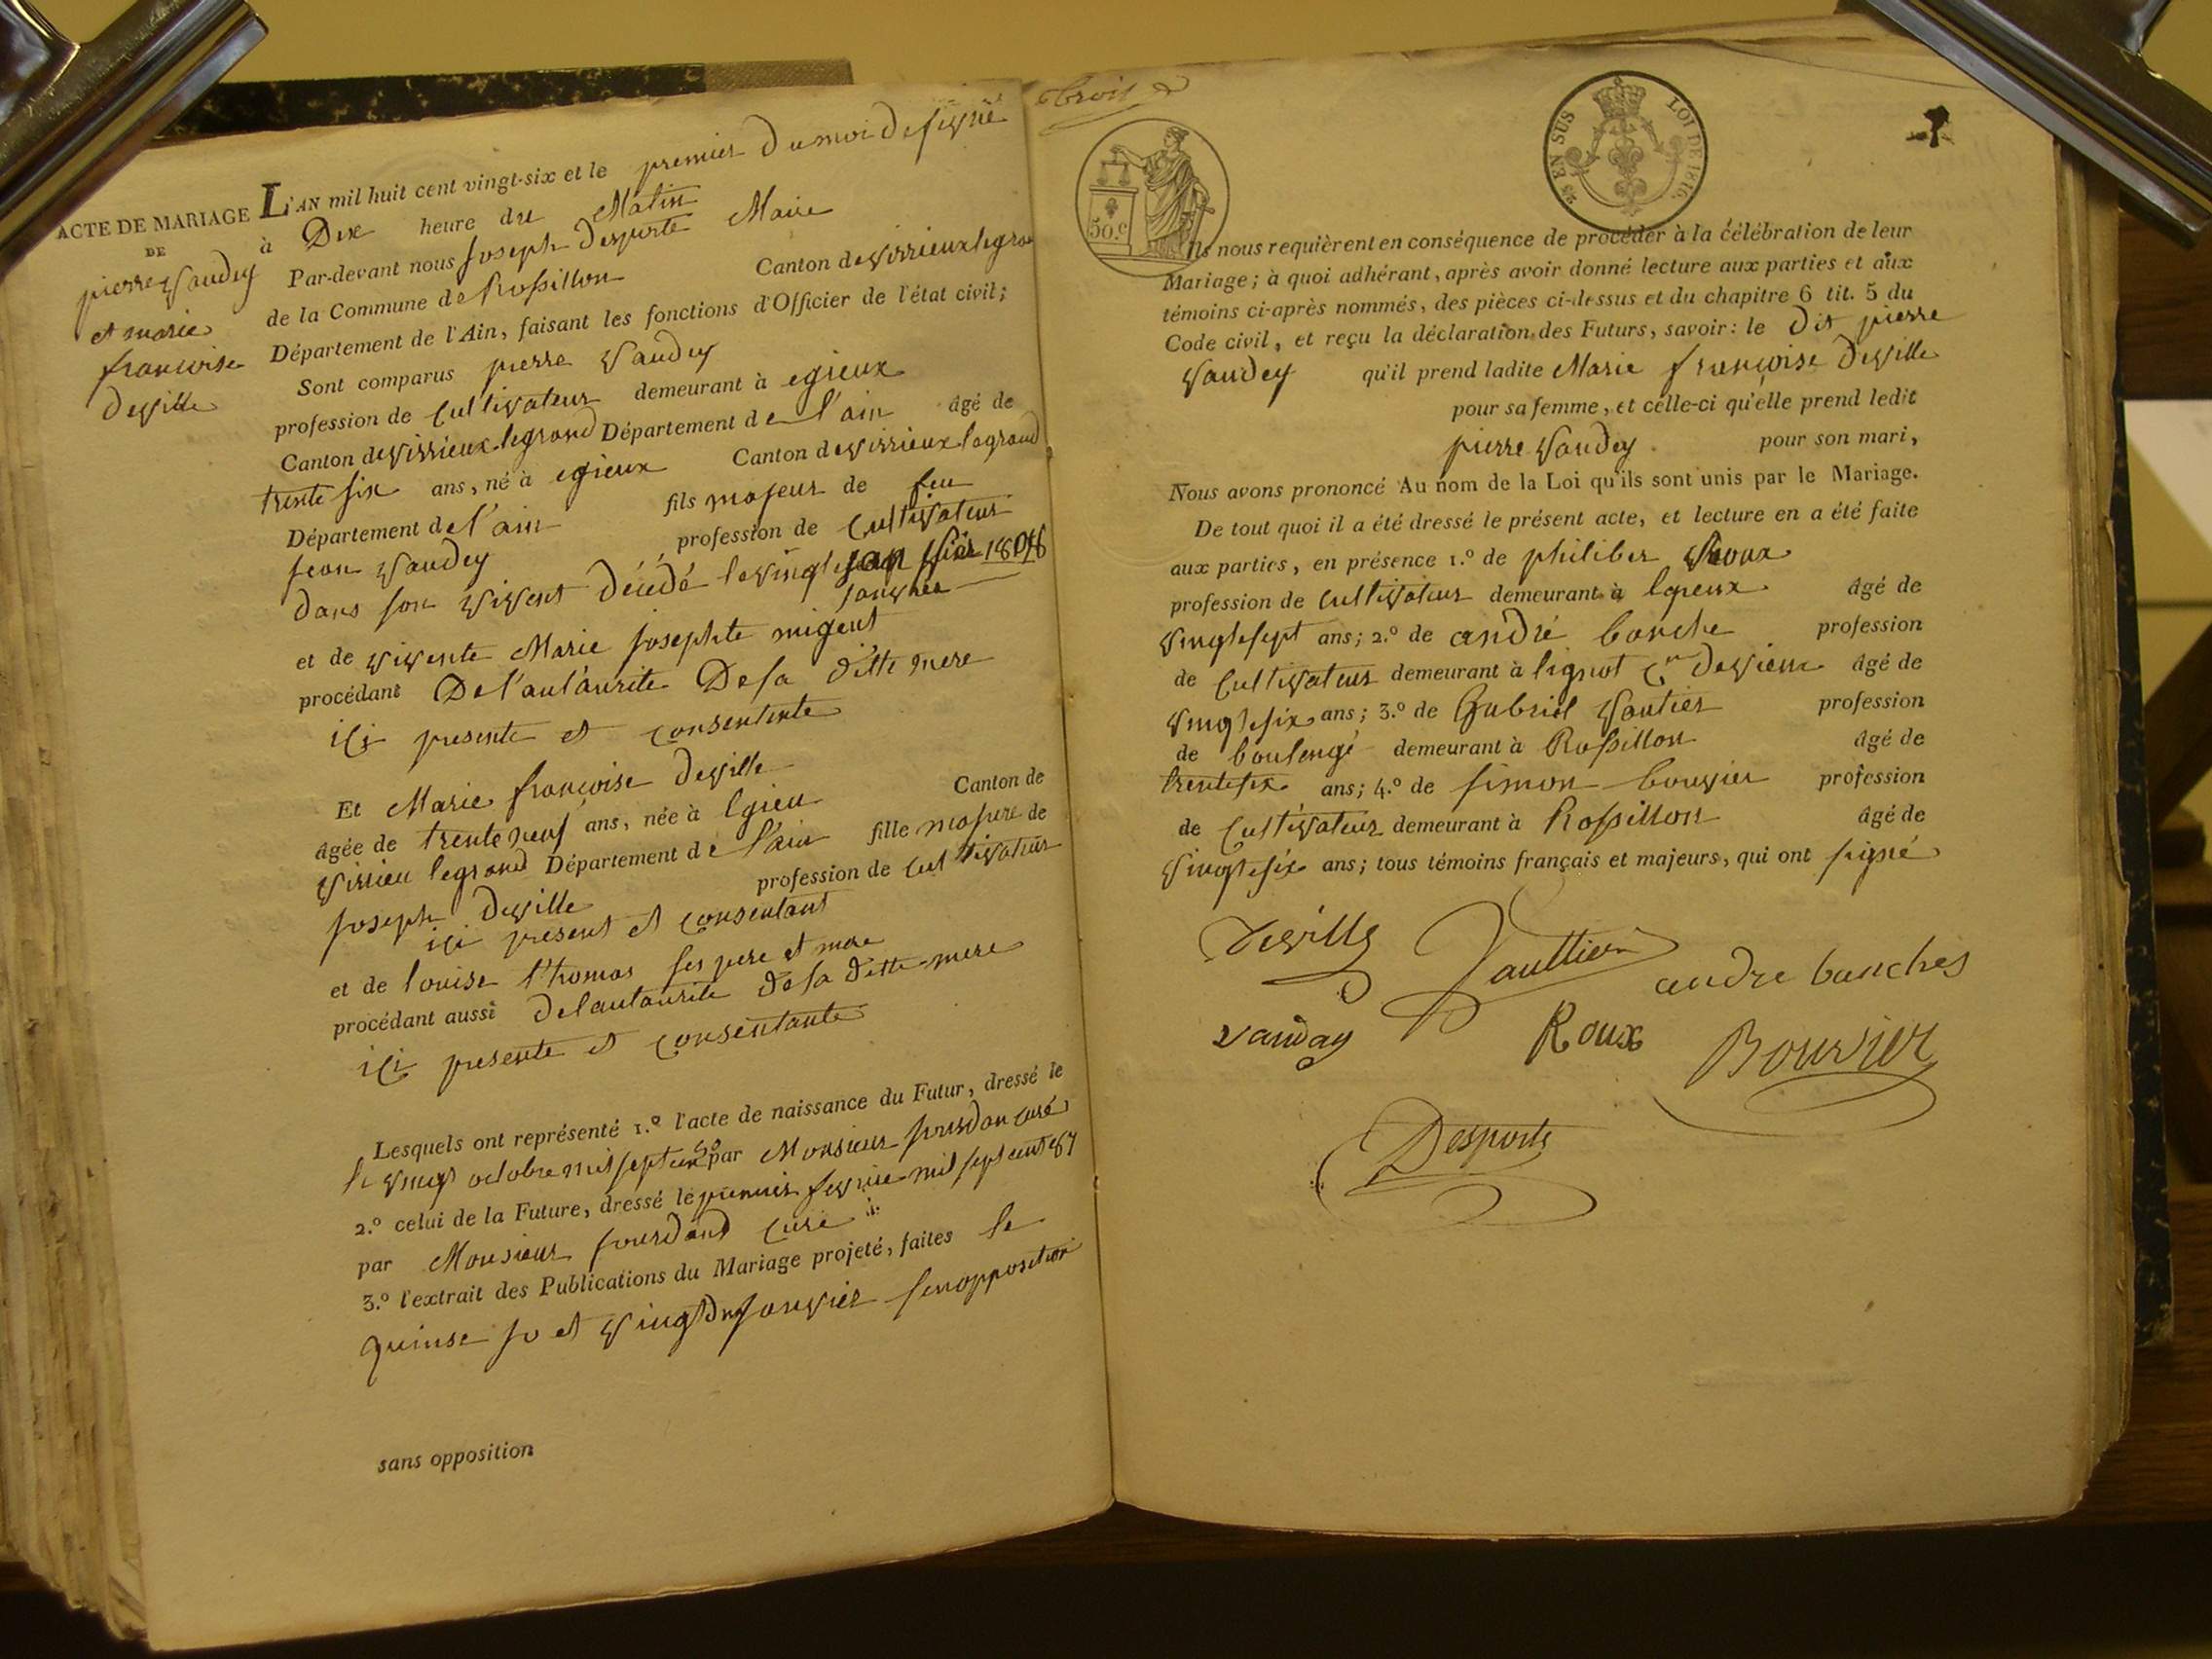 ACTE DE MARIAGE
DE
pierre Vaudey
et marie
francoise
deville
L'AN mil huit cent vingt-six et le premier du moi de fevrié
à Dix heure du Matin
Par-devant nous joseph desporte Maire
de la Commune de Rossillon Canton de virieux legrand
Département de l'Ain, faisant les fonctions d'Officier de l'état civil;
Sont comparus pierre Vaudey
profession de cultivateur demeurant à egieux
Canton de virrieux legrand Département de l'ain âgé de
trente six ans, né à egieux Canton de virrieux legrand
Département de l'ain fils majeur de feu
jean Vaudey profession de cultivateur
dans son vivent décédé le vingt
janvier
et de vivente Marie josephte migent
procédant De l'autaurite De sa ditte mere
ici presente et consentente
Et Marie francoise deville
âgée de trente neuf ans, née à Egieu Canton de
Virrieu legrand Département de l'ain fille majure de
joseph deville profession de cultivateur
ici présent et consentant
et de louise thomas ses pere et mere
procédant aussi de l'autaurite de sa ditte mere
ici presente et consentante
Lesquels ont représenté 1.º l'acte de naissance du Futur, dressé le
le vingt octobre mil sept cent par Monsieur jourdan curé
2.º celui de la Future, dressé le premier fevrie mil sept cent 87
par Monsieur jourdand curé
3.º l'extrait des Publications du Mariage projeté, faites le
quinse et vingt janvier sen opposition
sans opposition
trois
50.c
2/5 EN SUS
LOI DE 1816.
Ils nous requièrent en conséquence de procéder à la célébration de leur
Mariage; à quoi adhérant, après avoir donné lecture aux parties et aux
témoins ci-après nommés, des pièces ci-dessus et du chapitre 6 tit. 5 du
Code civil, et reçu la déclaration des Futurs, savoir: le dit pierre
Vaudey qu'il prend ladite Marie françoise deville
pour sa femme, et celle-ci qu'elle prend ledit
pierre Vaudey pour son mari,
Nous avons prononcé Au nom de la Loi qu'ils sont unis par le Mariage.
De tout quoi il a été dressé le présent acte, et lecture en a été faite
aux parties, en présence 1.º de philiber Roux
profession de cultivateur demeurant à Egieux âgé de
vingt sept ans; 2.º de andré banche profession
de cultivateur demeurant à lignot âgé de
vingt six ans; 3.º de Gabriel Vautier profession
de boulengé demeurant à Rossillon âgé de
trente six ans; 4.º de simon bouvier profession
de cultivateur demeurant à Rossillon âgé de
vingt six ans; tous témoins français et majeurs, qui ont signé
deville Vaulttier andre banches
vauday Roux Bouvier
Desporte